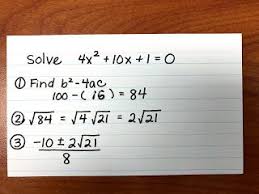 Solve 4x² + 10x + 1 = 0
① Find b² - 4ac
100 - (16) = 84
② √84 = √4 √21 = 2√21
③ -10 ± 2√21
8